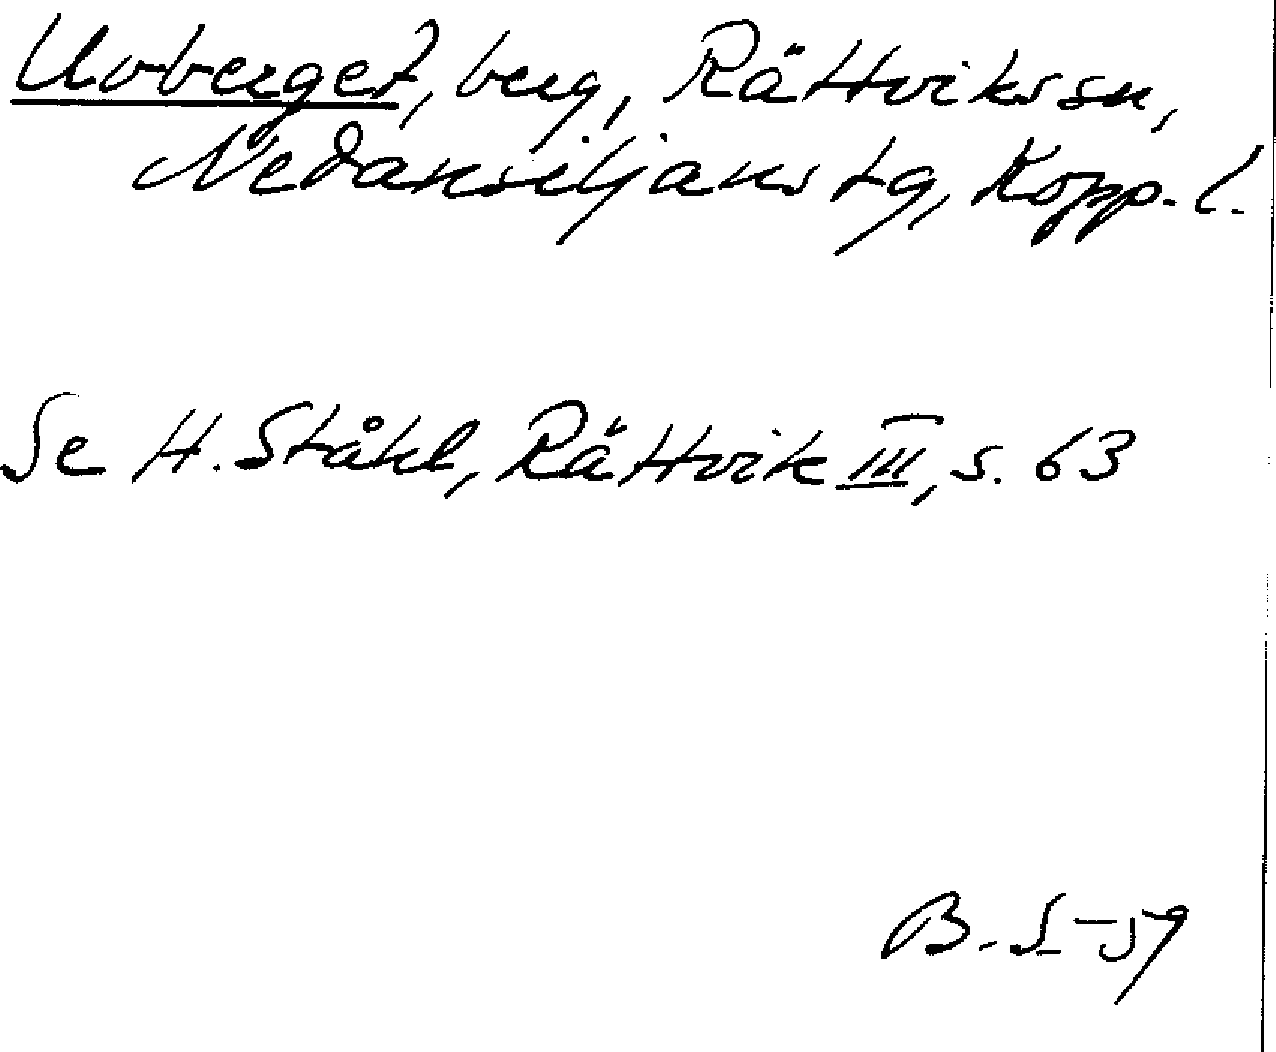 Uvberget, berg, Rättviks sn,
Nedansiljans tg, Kopp. l.
Se H. Ståhl, Rättvik III, s. 63
B. S-59